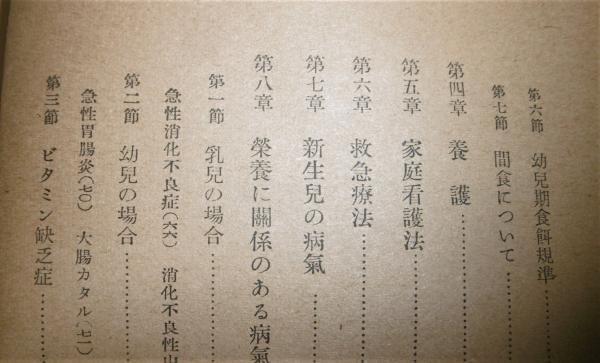 第六節 幼兒期食餌規準…………
第七節 間食について…………
第四章 養護…………
第五章 家庭看護法…………
第六章 救急療法…………
第七章 新生兒の病氣…………
第八章 榮養に關係のある病氣
第一節 乳兒の場合…………
急性消化不良症(六六) 消化不良性
第二節 幼兒の場合…………
急性胃腸炎(七〇) 大腸カタル(七一)
第三節 ビタミン缺乏症…………